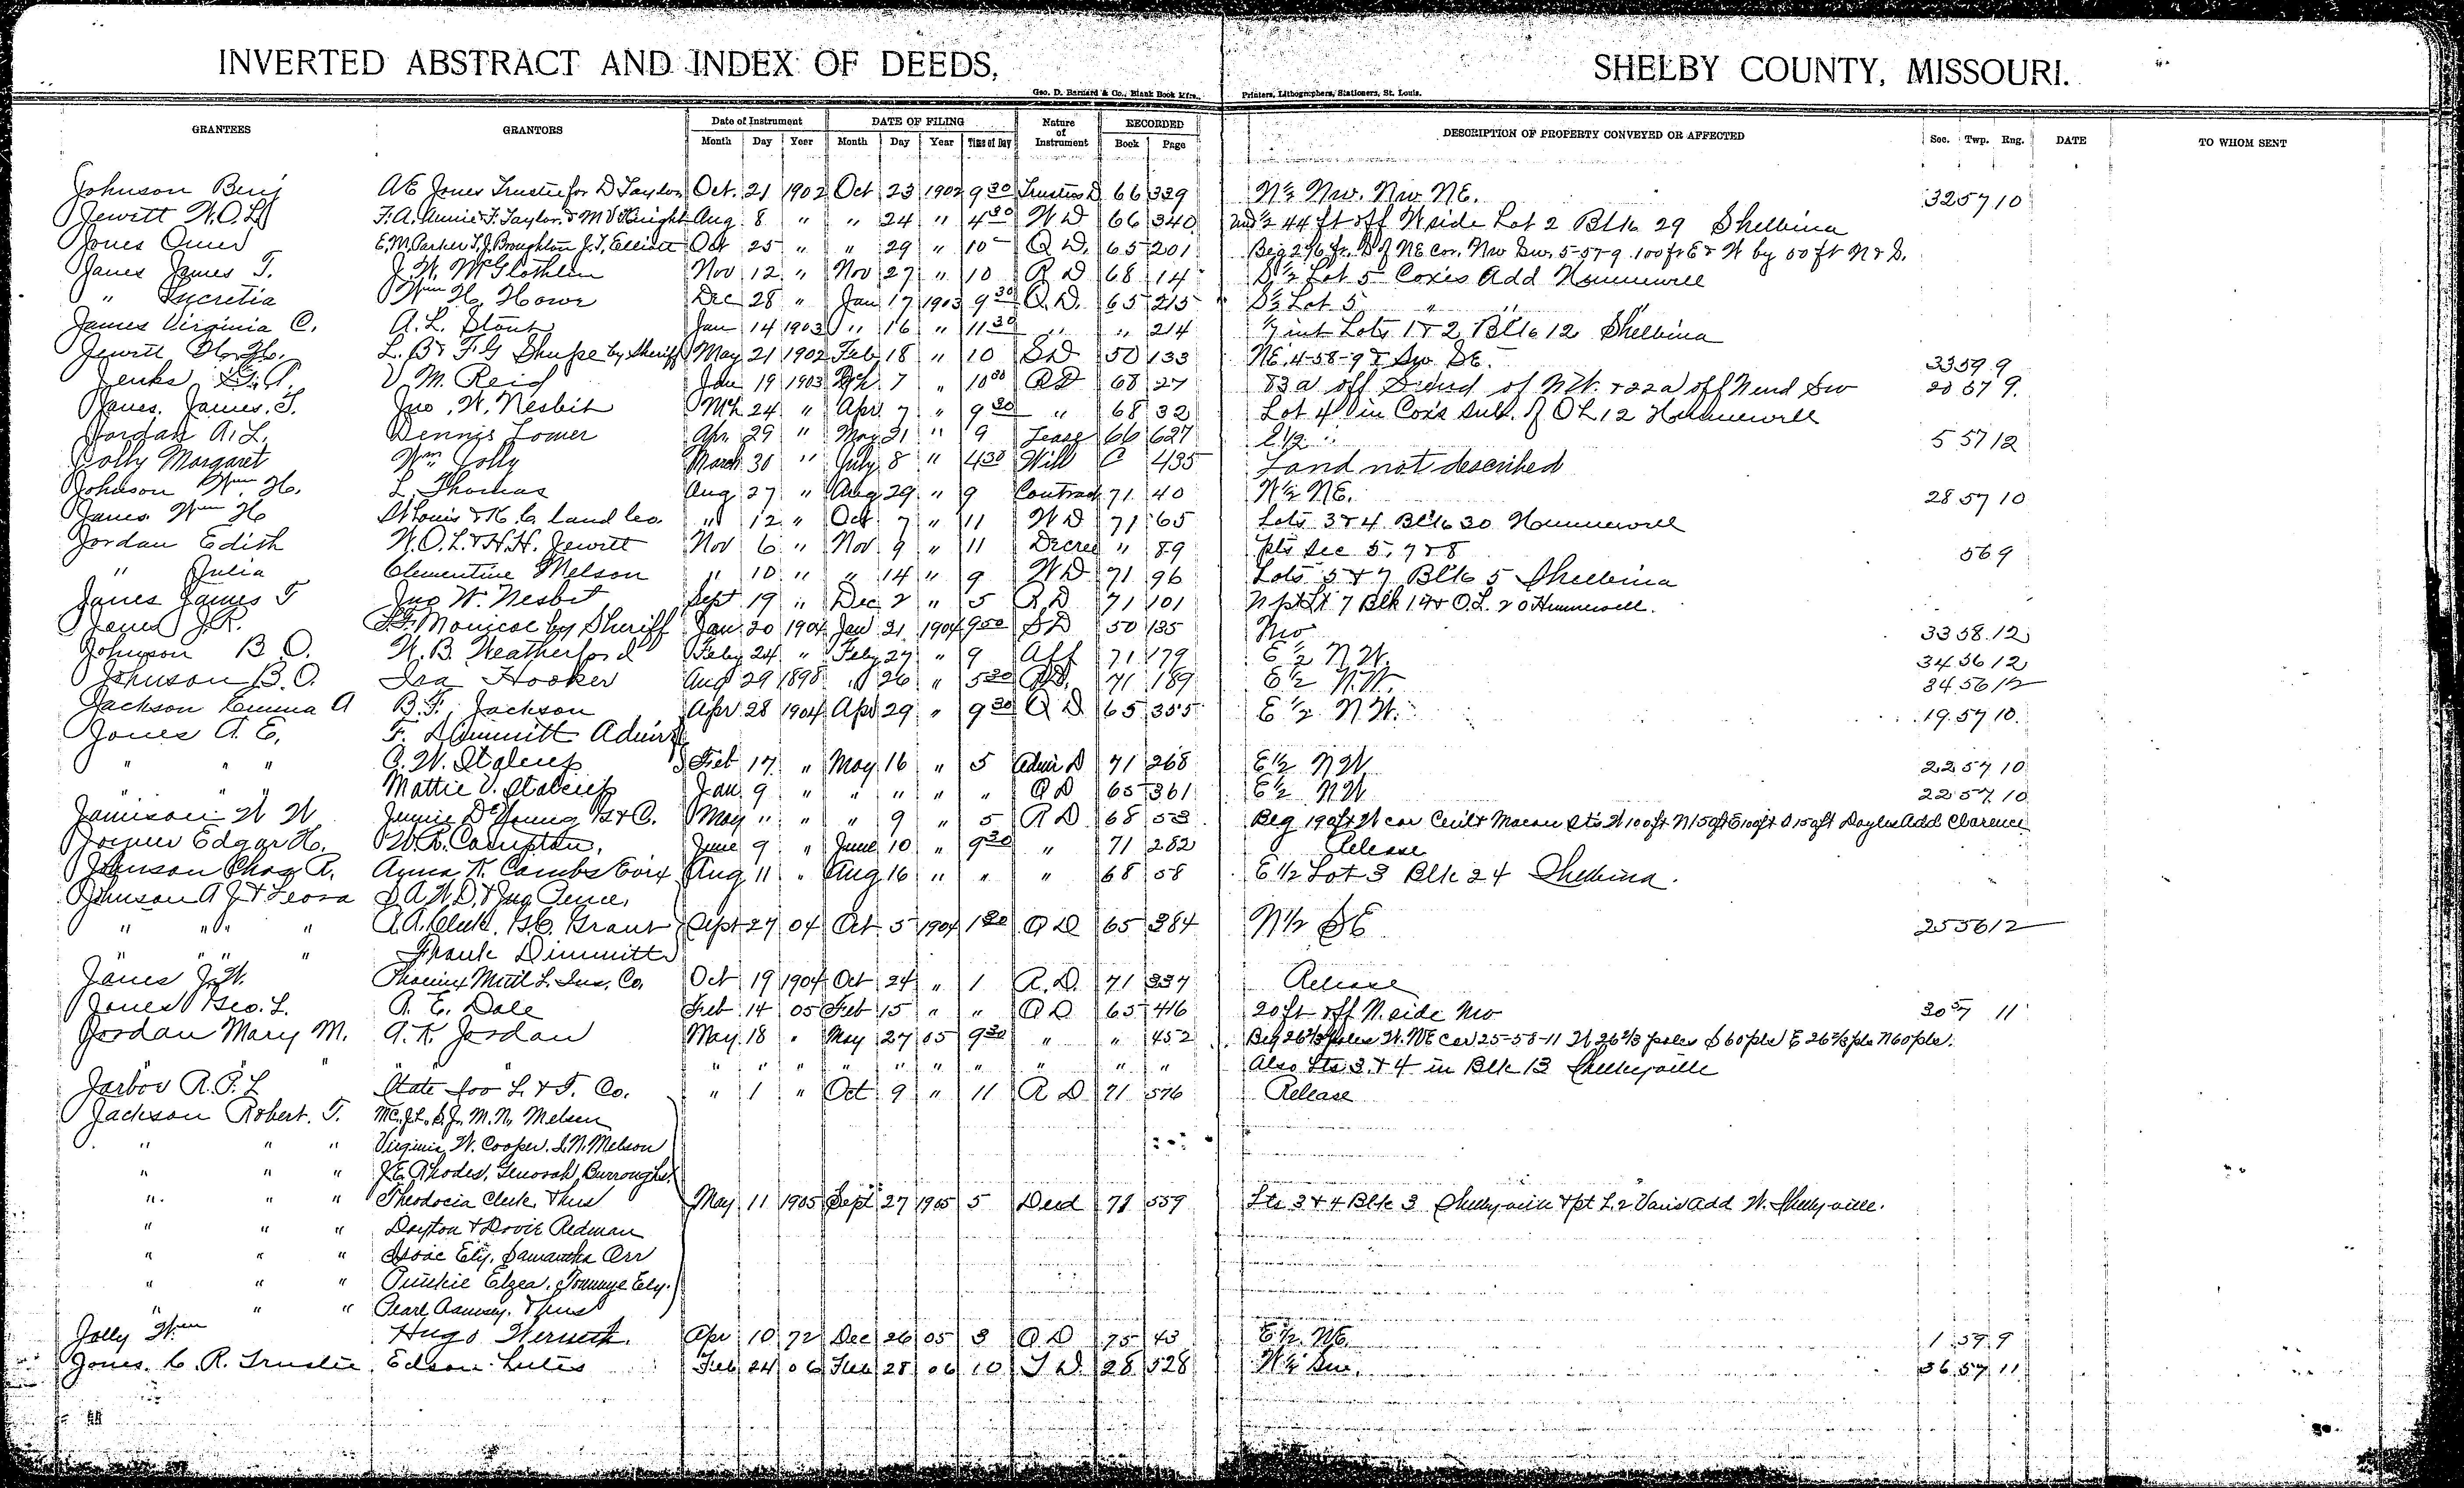 INVERTED ABSTRACT AND INDEX OF DEEDS, SHELBY COUNTY, MISSOURI.
Geo. D. Barnard & Co., Blank Book Mfrs., Printers, Lithographers, Stationers, St. Louis.
GRANTEES GRANTORS Date of Instrument DATE OF FILING Nature of Instrument RECORDED DESCRIPTION OF PROPERTY CONVEYED OR AFFECTED Sec. Twp. Rng. DATE TO WHOM SENT
Month Day Year Month Day Year Time of Day Book Page
Johnson Benj A E Jones Trustee for D Taylor Oct. 21 1902 Oct 23 1902 9 30 Trustees D 66 339 N½ Nw. Nw NE. 32 57 10
Jewett W.O.L. F.A. Annie F. Taylor & M V Knight Aug 8 " " 24 " 4 30 W D 66 340 44 ft off W side Lot 2 Blk 29 Shelbina
Jones Omer E.M. Parker T.J. Broughton J.T. Elliott Oct 25 " " 29 " 10 Q D. 65 201 Beg 216 ft. S of NE Cor. Nw Sw. 5-57-9 100 ft E & W by 50 ft N & S.
Janes James T. J.W. McGlothlin Nov 12 " Nov 27 " 10 R D 68 14 S½ Lot 5 Coxes Add Hunnewell
" Lucretia Wm H. Howe Dec 28 " Jan 17 1903 9 30 Q.D. 65 215 S½ Lot 5 " "
James Virginia C. A.L. Stout Jan 14 1903 " 16 " 11 30 " " 214 1/7 int Lots 1 & 2 Blk 12 Shelbina
Jewett H.H. L.B & F.G Shupe by Sheriff May 21 1902 Feb 18 " 10 S D 50 133 NE. 4-58-9 & Sw SE. 33 59 9
Jenks V M. Reid Jan 19 1903 Mch. 7 " 10 30 R D 68 27 83 a off S end of NW. & 22 a off N end Sw 20 57 9.
Janes. James. T. Jno. W. Nesbit Mch 24 " Apr. 7 " 9 30 " 68 32 Lot 4 in Cox's Sub. of O L 12 Hunnewell
Jordan A. L. Dennis Lomer Apr 29 " May 21 " 9 Lease 66 627 E½ 5 57 12
Jolly Margaret Wm Jolly March 30 " July 8 " 4 30 Will C 435 Land not described
Johnson Wm H. L. Thomas Aug 27 " Aug 29 " 9 Contract 71 40 W½ NE. 28 57 10
Janes. Wm H St Louis & K.C. Land Co. " 12 " Oct 7 " 11 W D 71 65 Lots 3 & 4 Blk 30 Hunnewell
Jordan Edith W.O.L. & H.H. Jewett Nov 6 " Nov 9 " 11 Decree " 89 pts Sec 5, 7 & 8 56 9
" Julia Clementine Melson " 10 " " 14 " 9 W D 71 96 Lots 5 & 7 Blk 5 Shelbina
Janes James T Jno W. Nesbit Sept 19 " Dec 2 " 5 R D 71 101 N pt Lt 7 Blk 14 & O.L. 20 Hunnewell.
Janes J.R. Monicoe by Sheriff Jan 20 1904 Jan 21 1904 9 50 S D 50 135 Nw 33 58 12
Johnson B O. W.B. Weatherford Feby 24 " Feby 27 " 9 Aff 71 179 E½ NW. 34 56 12
Johnson B.O. Isa Hooker Aug 29 1898 " 26 " 5 30 71 189 E½ N.W. 34 56 12
Jackson Emma A B.F. Jackson Apr 28 1904 Apr 29 " 9 30 Q D 65 355 E½ NW. 19 57 10
Jones A. E. F. Dimmitt Admr
" " " C.W. Stalcup Feb 17 " May 16 " 5 Admr D 71 268 E½ NW 22 57 10
" " " Mattie V. Stalcup Jan 9 " " " " " Q D 65 361 E½ NW 22 57 10
Jamison W W Jennie DeYoung G & C. May " " " 9 " 5 R D 68 53 Beg 190 ft W cor Cent & Macon Sts W 100 ft N 150 ft E 100 ft S 150 ft Doyles Add Clarence
Joyner Edgar H. W.R. Compton, June 9 " June 10 " 9 30 " 71 282 Release
Johnson Chas R. Anna K. Combs Exix Aug 11 " Aug 16 " " " 68 58 E½ Lot 3 Blk 24 Shelbina.
Johnson A J & Leora S A. W D. & Jno Pence,
" " " A.A. Clark, G.C. Grant Sept 27 04 Oct. 5 1904 1 30 Q D 65 384 N½ SE 25 56 12
" " " Frank Dimmitt
Janes J.W. Phoenix Mutl L. Ins. Co. Oct 19 1904 Oct 24 " 1 R.D. 71 337 Release
Jones Geo. L. A. E. Dale Feb 14 05 Feb 15 " " Q D 65 416 20 ft off N. side Nw 30 57 11
Jordan Mary M. A. K. Jordan May 18 " May 27 05 9 30 " " 452 Beg 26 2/3 poles W. NE cor 25-58-11 W 26 2/3 poles S 60 pls E 26 2/3 pls N 60 pls.
" " " " " " " " " " " " " Also Lts 3 & 4 in Blk 13 Shelbyville
Jarboe R.P.L State Sav L. & T. Co. " 1 " Oct 9 " 11 R D 71 576 Release
Jackson Robert. T. Mc., J.L., S.J., M.N., Melson
" " " Virginia W. Cooper. I.N. Melson
" " " J.E. Rhodes, Burroughs,
" " " Theodocia Clerk, & Hus May 11 1905 Sept 27 1905 5 Deed 71 559 Lts 3 & 4 Blk 3 Shelbyville & pt L 2 Vans Add W. Shelbyville.
" " " Dayton & Dovie Redman
" " " Isaac Ely, Samantha Orr
" " " Pinkie Elzea, Tommye Ely.
" " " Pearl Ramsey. & Hus
Jolly Wm Hugo Werneth. Apr 10 72 Dec 26 05 3 Q D 75 43 E½ NE. 1 59 9
Jones. C. R. Trustee Edson Lutes Feb 24 06 Feb 28 06 10 T D. 28 528 W½ Sw. 36 57 11